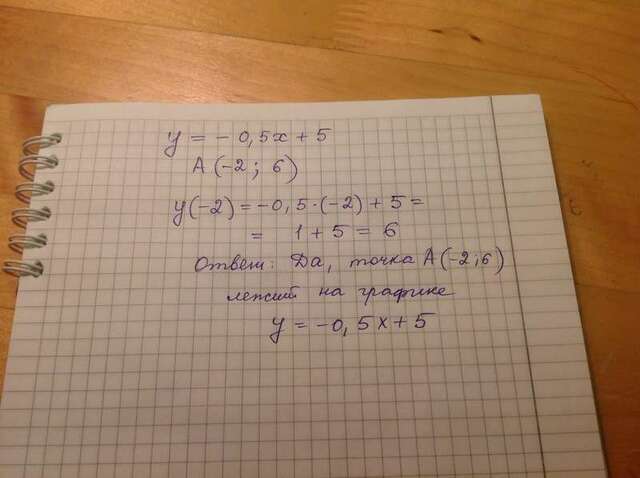 y = - 0,5x + 5
A (-2 ; 6)
y(-2) = -0,5·(-2) + 5 =
= 1 + 5 = 6
Ответ: Да, точка A(-2;6)
лежит на графике
y = -0,5x + 5